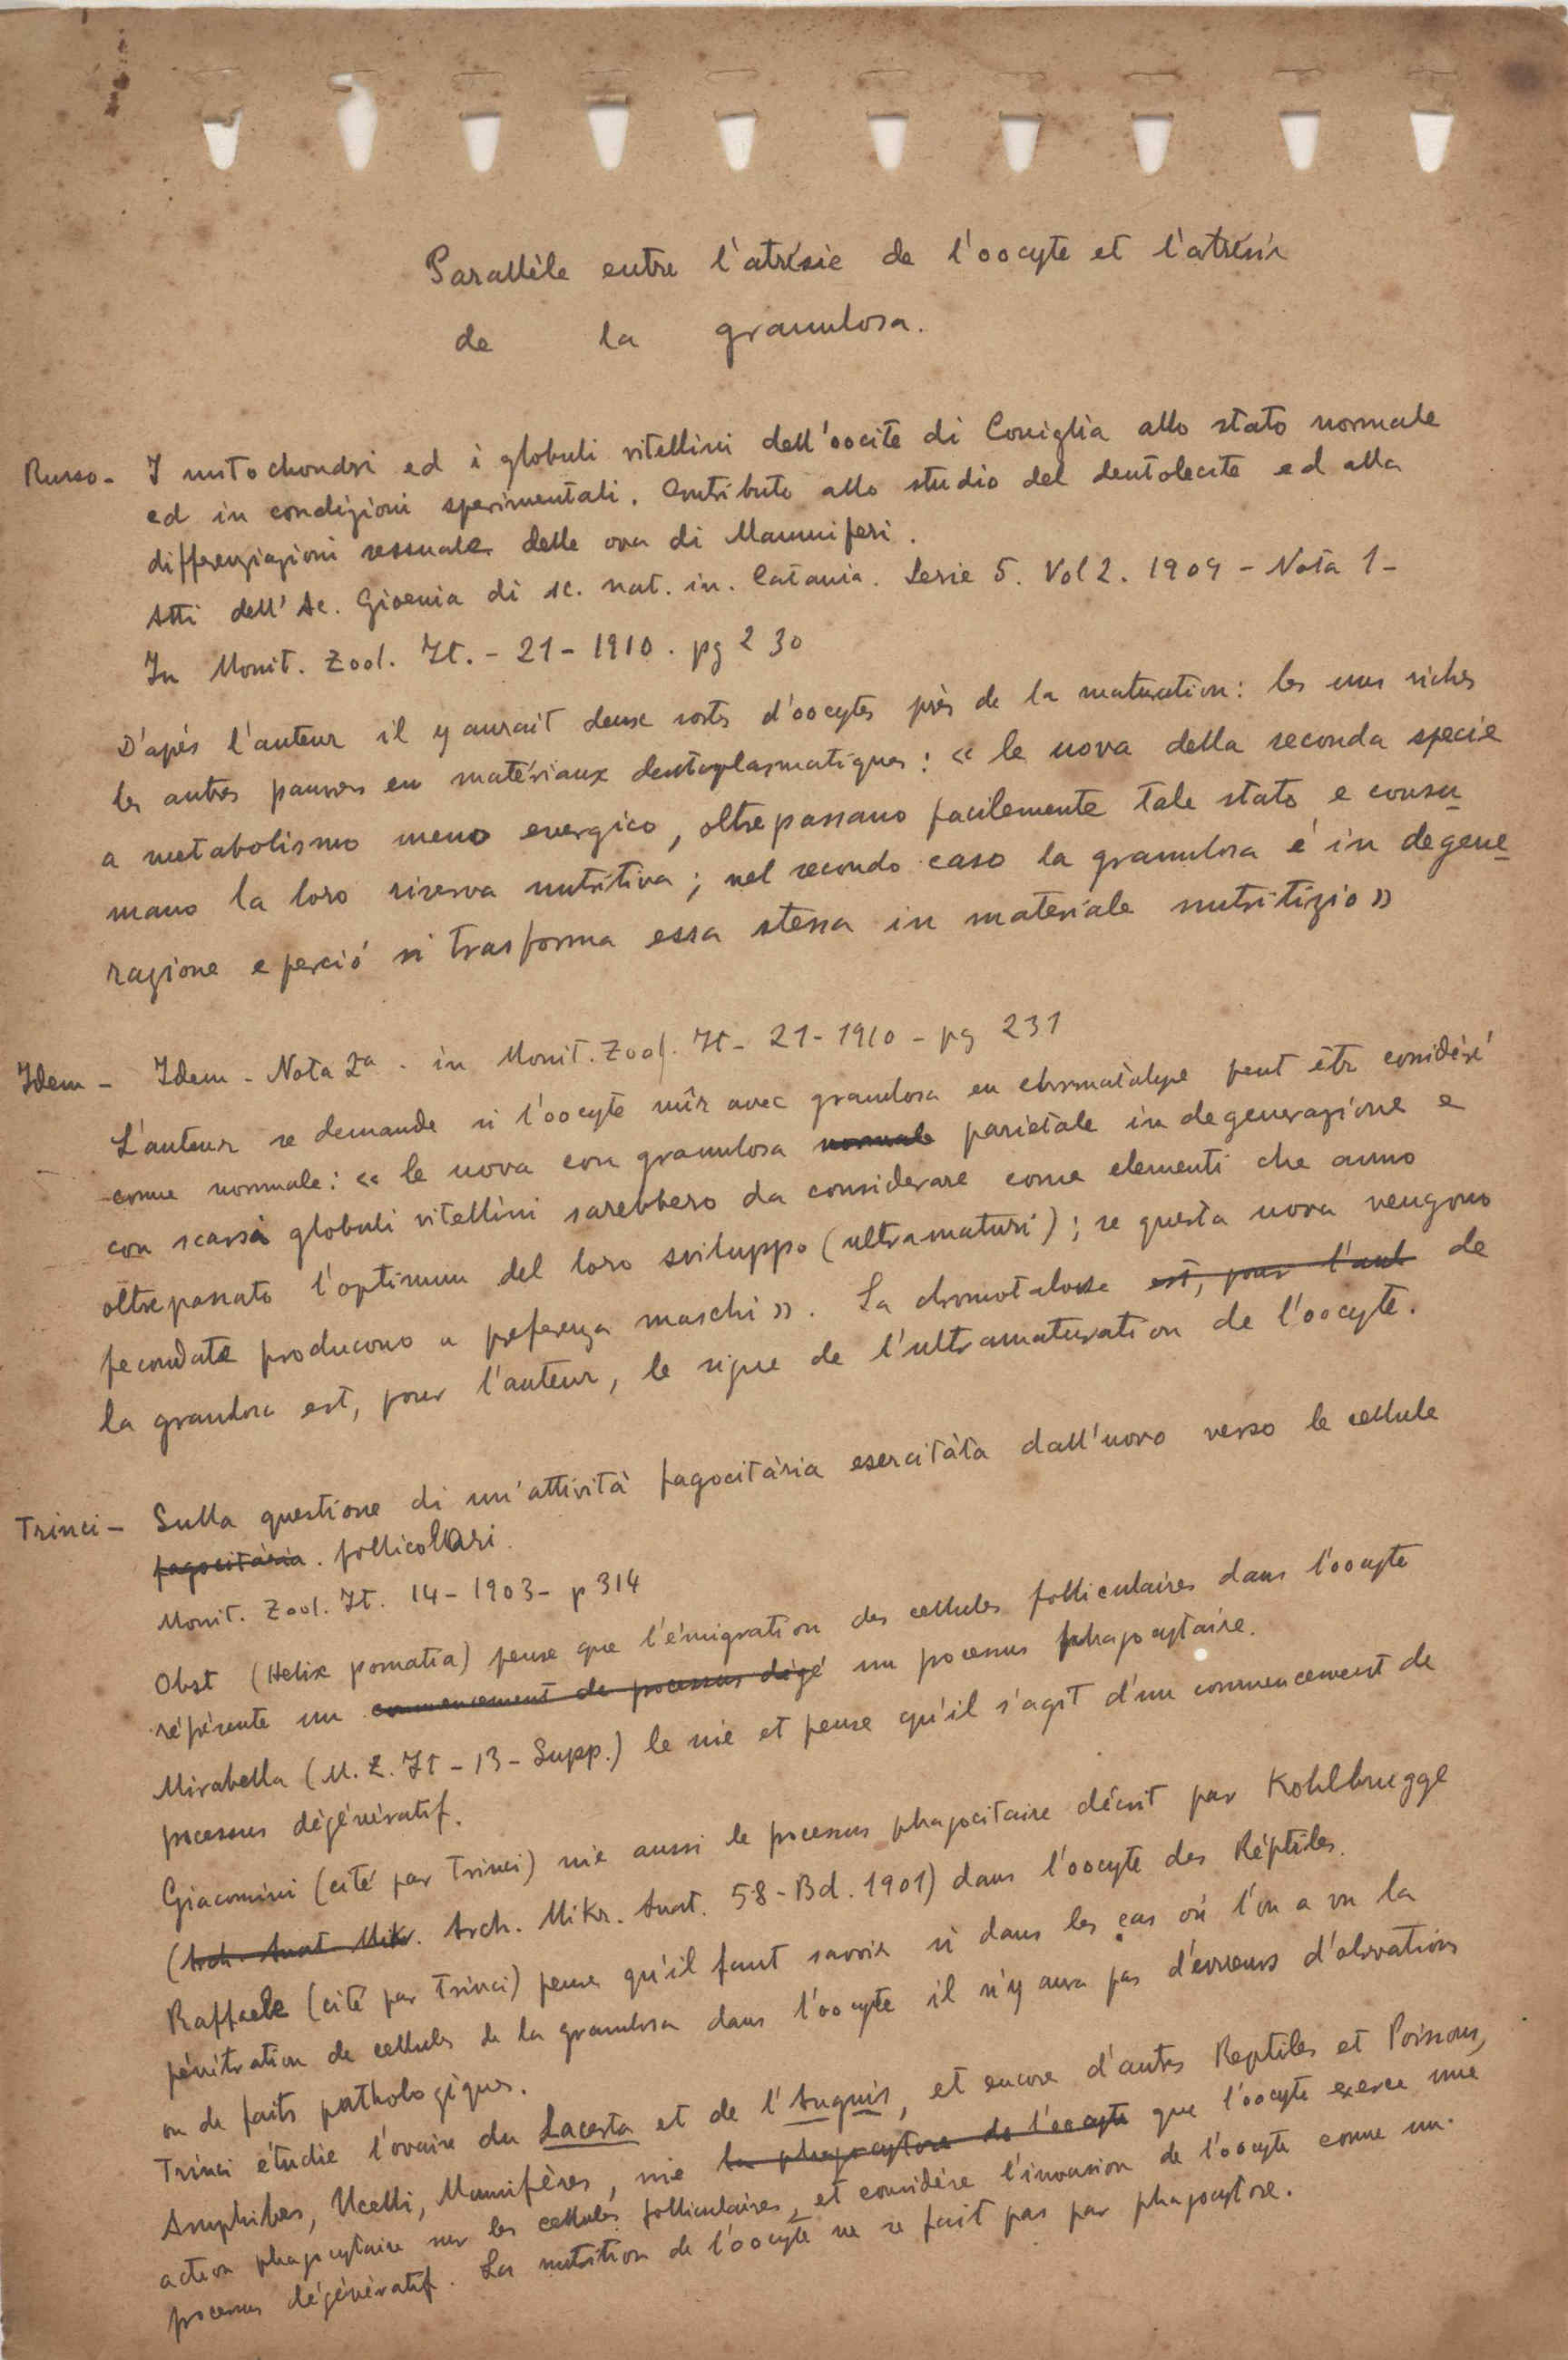 Parallèle entre l'atrésie de l'oocyte et l'atrésie
de la granulosa.
Russo - I mitochondri ed i globuli vitellini dell'oocite di Coniglia allo stato normale
ed in condizioni sperimentali. Contributo allo studio del deutolecite ed alla
differenziazioni sessuale delle ova di Mammiferi.
Atti dell'Ac. Gioenia di sc. nat. in. Catania. Serie 5. Vol 2. 1909 - Nota 1 -
In Monit. Zool. It. - 21 - 1910. pg 230
D'après l'auteur il y aurait deux sortes d'oocytes près de la maturation: les uns riches
les autres pauvres en matériaux deutoplasmatiques: « le uova della seconda specie
a metabolismo meno energico, oltrepassano facilemente tale stato e consu
mano la loro riserva nutritiva; nel secondo caso la granulosa é in degene
razione e perció si trasforma essa stessa in materiale nutritizio »
Idem - Idem - Nota 2a. in Monit. Zool. It - 21 - 1910 - pg 231
L'auteur se demande si l'oocyte mûr avec granulosa en chromatolyse peut être considéré
comme normale: « le uova con granulosa normale parietale in degenerazione e
con scarsi globuli vitellini sarebbero da considerare come elementi che anno
oltrepassato l'optimum del loro sviluppo (ultramaturi); se questa uova vengono
fecondate producono a preferenza maschi ». La chromotalose est, pour l'aut de
la granulosa est, pour l'auteur, le signe de l'ultramaturation de l'oocyte.
Trinci - Sulla questione di un'attività fagocitària esercitàta dall'uovo verso le cellule
fagocitària. follicollari.
Monit. Zool. It. 14 - 1903 - p 314
Obst (Helix pomatia) pense que l'émigration des cellules folliculaires dans l'oocyte
répésente un commencement de processus dégé un pocessus phagocytaire.
Mirabella (M. Z. It - 13 - Supp.) le nie et pense qu'il s'agit d'un commencement de
pocessus dégénératif.
Giacomini (cité par Trinci) nie aussi le pocessus phagocitaire décrit par Kohlbrugge
(Arch. Anat Mikr. Arch. Mikr. Anat. 58 - Bd. 1901) dans l'oocyte des Réptiles.
Raffaele (cité par Trinci) pense qu'il faut savoir si dans les cas où l'on a vu la
pénétration de cellules de la granulosa dans l'oocyte il n'y aura pas d'erreurs d'obsvations
ou de faits pathologiques.
Trinci étudie l'ovaire du Lacerta et de l'Anguis, et encore d'autres Reptiles et Poissons,
Amphibes, Ucelli, Mammifères, nie la phagocytose de l'oocyte que l'oocyte exerce une
action phagocytaire sur les cellules folliculaires, et considère l'invasion de l'oocyte comme un
processus dégénératif. La nutrition de l'oocyte ne se fait pas par phagocytose.